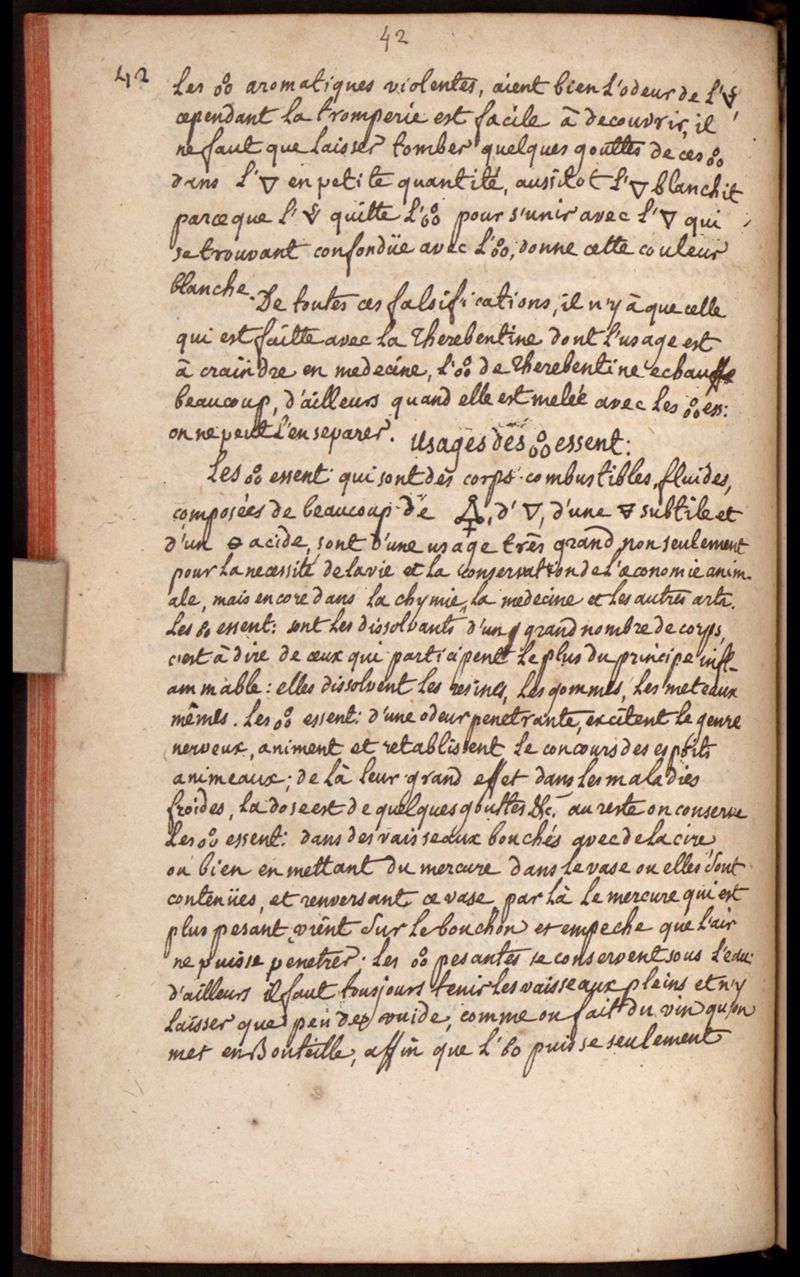 42
42
Les o°o aromatiques violentes, aient bien l'odeur de l'🜅
cependant la tromperie est facile à decouvrir, il
ne faut que laisser tomber quelques gouttes de ces o°o
dans l'🜄 en petite quantité, ausitot l'🜄 blanchit
parceque l'🜅 quitte l'o°o pour s'unir avec l'🜄 qui
se trouvant confondüe avec l'o°o, donne cette couleur
blanche.
De toutes ces falsifications, il n'y à que celle
qui est faitte avec la Therebentine dont l'usage est
à craindre en medecine, l'o°o de Therebentine echauffe
beaucoup, d'ailleurs quand elle est melée avec les o°o ess:
on ne peut l'en separer.
Usages des o°o essent:
Les o°o essent: qui sont des corps combustibles, fluides,
composées de beaucoup de 🜍, d'🜄, d'une 🜃 subtile et
d'un 🜔 acide, sont d'une usage très grand non seulement
pour la necessité de la vie et la conservation de l'economie anim-
ale, mais encore dans la chymie, la medecine et les autres arts.
Les o°o essent: sont les dissolvants d'un grand nombre de corps,
c'est à dire de ceux qui participent le plus du principe infl-
ammable: elles dissolvent les resines, les gommes, les meteaux
mêmes. Les o°o essent: d'une odeur penetrante, excitent le genre
nerveux, animent et retablissent le concours des esprits
animeaux; de là leur grand effet dans les maladies
froides, la dose est de quelques gouttes &c. au reste on conserve
les o°o essent: dans des vaisseaux bouchés avec de la cire,
ou bien en mettant du mercure dans le vase ou elles sont
contenües, et renversant ce vase par là le mercure qui est
plus pesant vient sur le bouchon et empeche que l'air
ne puisse penetrer. Les o°o pesantes se conservent sous l'eau:
d'ailleurs il faut tousjours tenir les vaisseaux pleins et n'y
laisser que peu de vuide, comme on fait du vin qu'on
met en Bouteille, affin que l'o°o puisse seulement